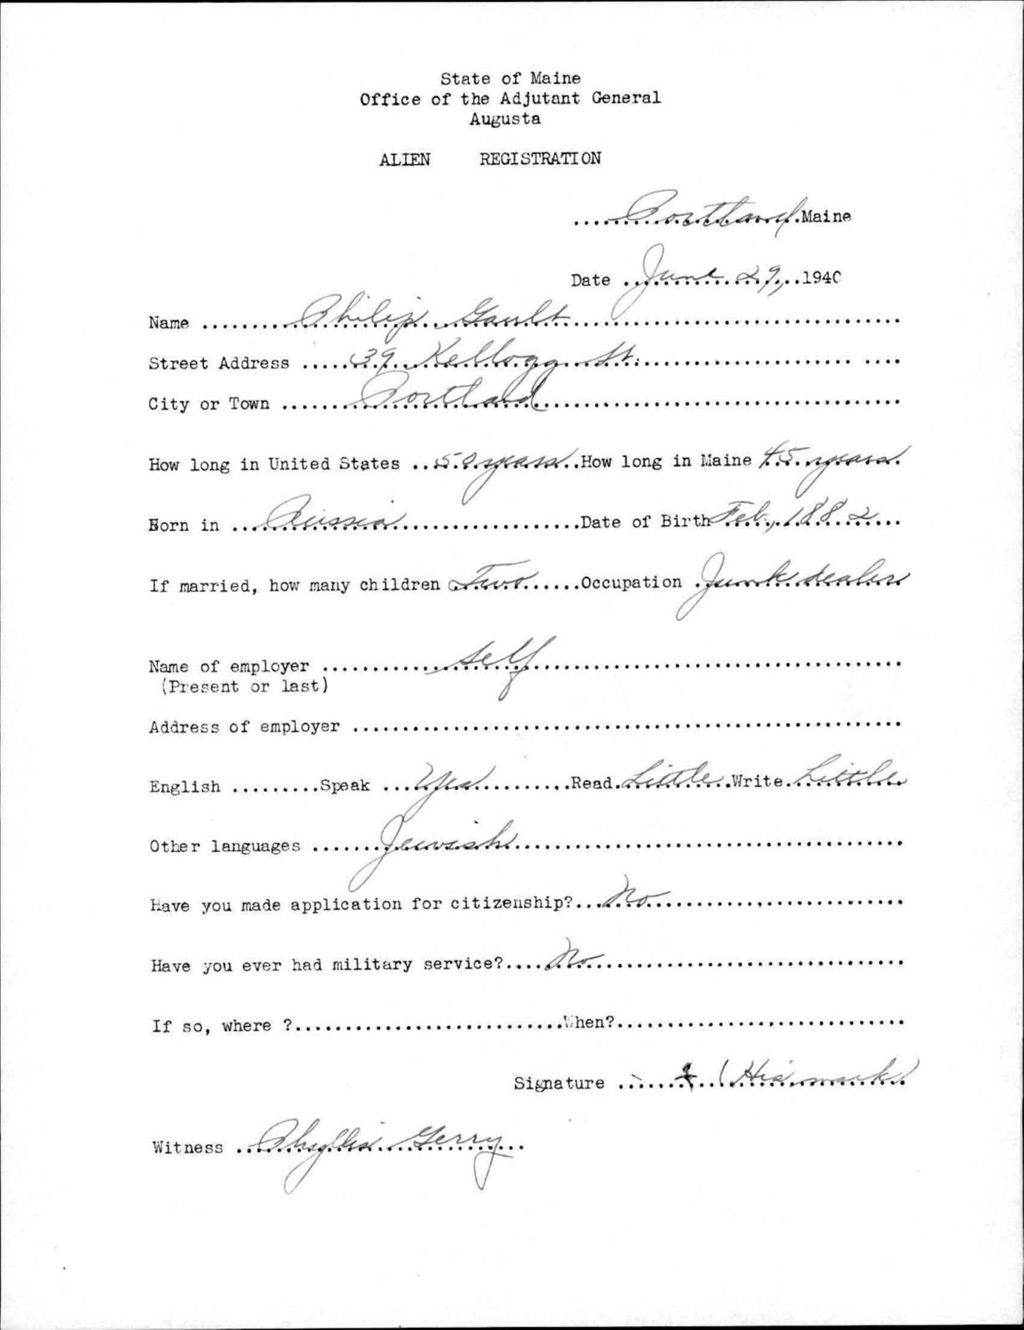 State of Maine
Office of the Adjutant General
Augusta
ALIEN REGISTRATION
Portland, Maine
Date June 29, 1940
Name Philip Gault
Street Address 39 Kellogg St.
City or Town Portland
How long in United States 50 years How long in Maine 45 years
Born in Russia Date of Birth Feb, 1882
If married, how many children Two Occupation Junk dealer
Name of employer Self
(Present or last)
Address of employer
English Speak Yes Read Little Write Little
Other languages Jewish
Have you made application for citizenship? No
Have you ever had military service? No
If so, where ? When?
Signature X (His mark)
Witness Phyllis Gerry